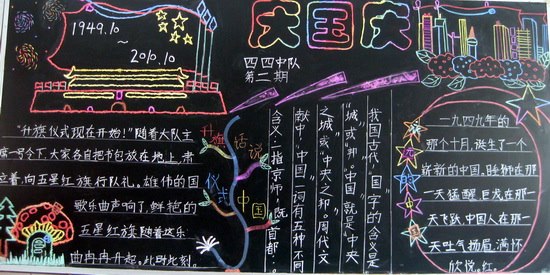 1949.10
~
2010.10
庆国庆
四四中队
第二期
"升旗仪式现在开始!"随着大队主
席一号令下,大家各自把书包放在地上,肃
立着,向五星红旗行队礼。雄伟的国
歌乐曲声响了,鲜艳的
五星红旗随着这乐
曲冉冉升起。此时此刻。
升旗仪式
话说中国
我国古代"国"字的含义是
"城"或"邦"。"中国"就是"中央
之城"或"中央之邦"。周代文
献中,"中国"一词有五种不同
含义:一指京师,既"首都"。
一九四九年的
那个十月,诞生了一个
崭新的中国。睡狮在那
一天猛醒,巨龙在那一
天飞跃,中国人在那一
天吐气扬眉,满怀
欣悦。红。